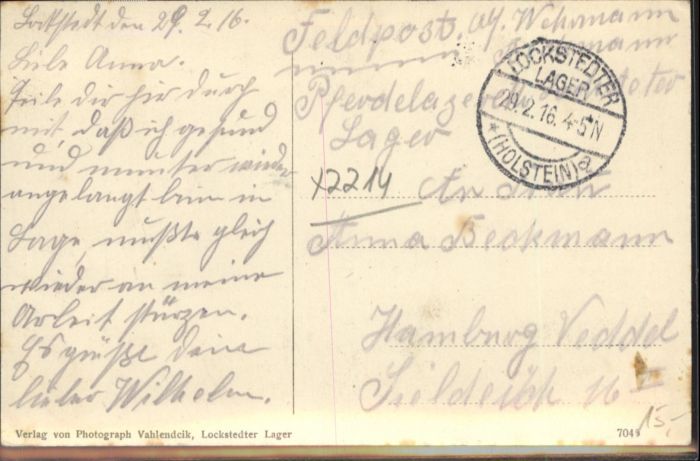 Lockstedt den 29.2.16.
Liebe Anna.
Teile dir hir durch
mit, daß ich gesund
und munter wieder
angelangt bin in
Lage, mußte gleich
wieder an meine
Arbeit stürzen.
Es grüßt deine
lieber Wilhelm.
Feldpost. Wehrmann
Pferdelager
Lager
LOCKSTEDTER
LAGER
29.2.16.4-5N
* (HOLSTEIN) a
X2214
An Frau
Anna Beckmann
Hamburg Veddel
16 III
15,-
Verlag von Photograph Vahlendcik, Lockstedter Lager
7045